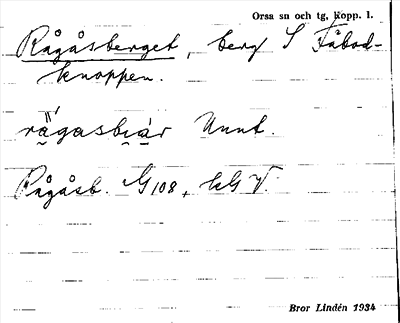 Orsa sn och tg, Kopp. l.
Rågåsberget, berg S Fäbod-
knoppen.
rä̈gasbiár Unnt.
Rågåsb. G108, kG V.
Bror Lindén 1934